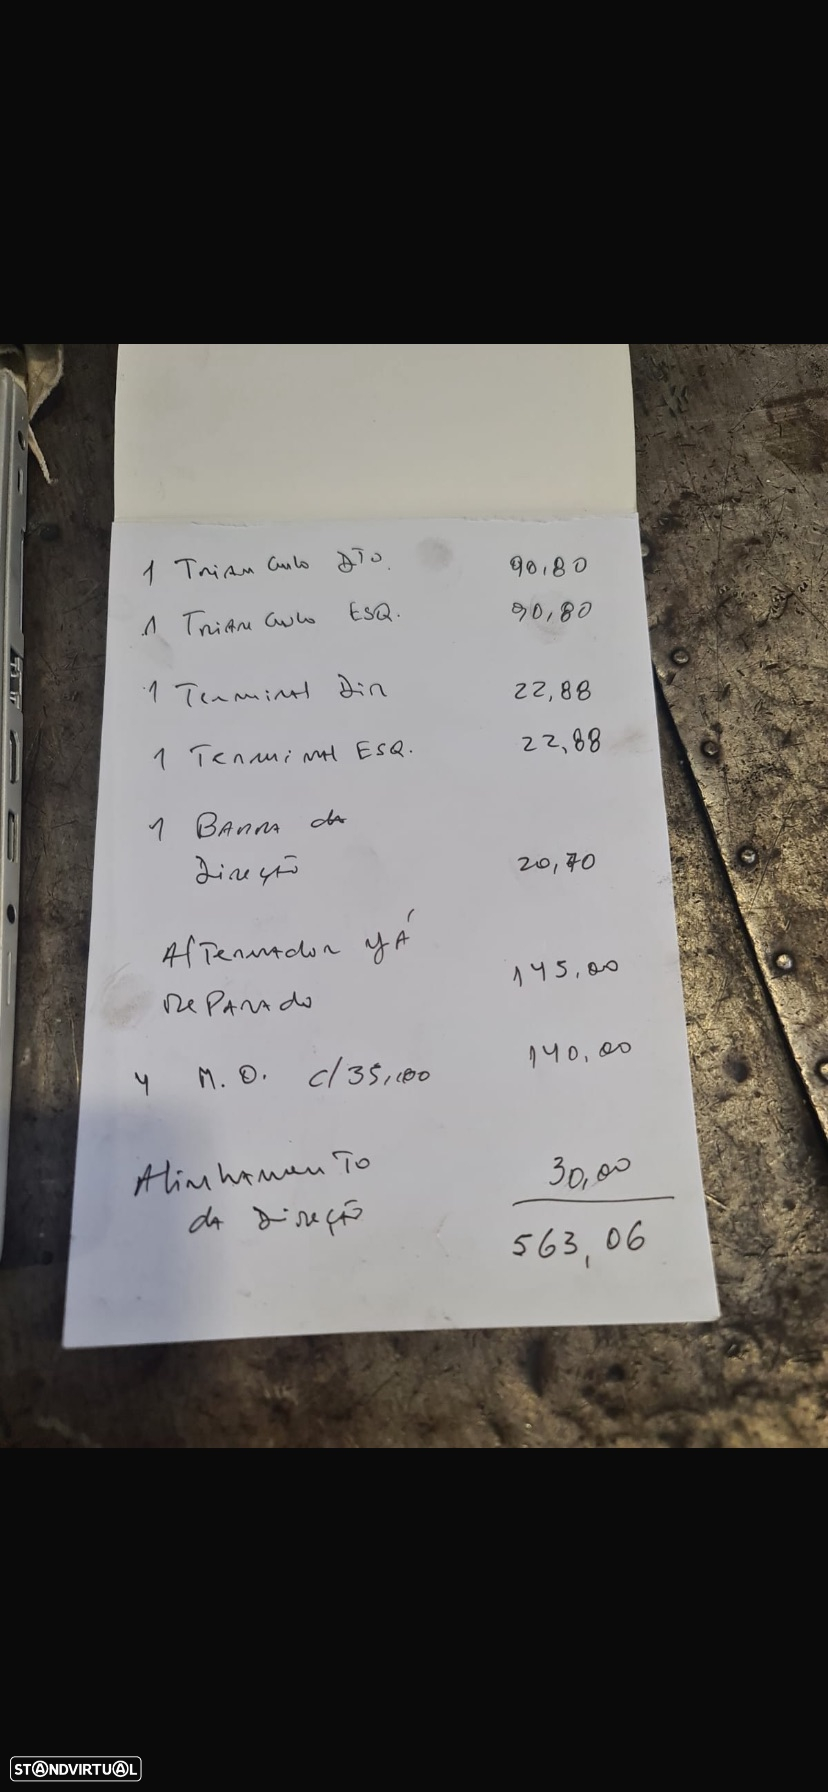 1 Triangulo Dto. 90,80
1 Triangulo ESQ. 90,80
1 Terminal Dir 22,88
1 Terminal ESQ. 22,88
1 Barra da
Direção 20,70
Alternador yÁ
reparado 145,00
4 M.O. c/35,00 140,00
Alinhamento 30,00
da Direção
563,06
STANDVIRTUAL